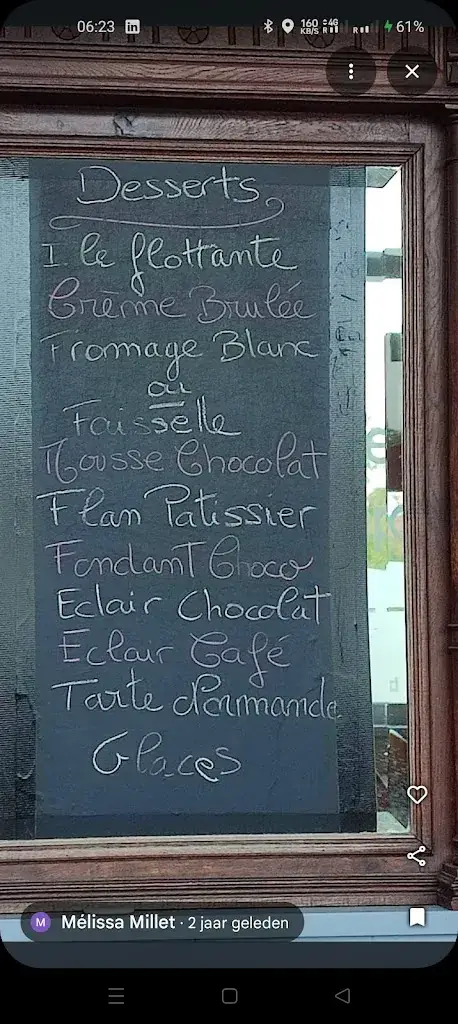 06:23 in 160 KB/S 4G R R 61%
Desserts
Ile flottante
Crème Brulée
Fromage Blanc
ou
Faisselle
Mousse Chocolat
Flan Patissier
Fondant Choco
Eclair Chocolat
Eclair Café
Tarte Normande
Glaces
M Mélissa Millet · 2 jaar geleden